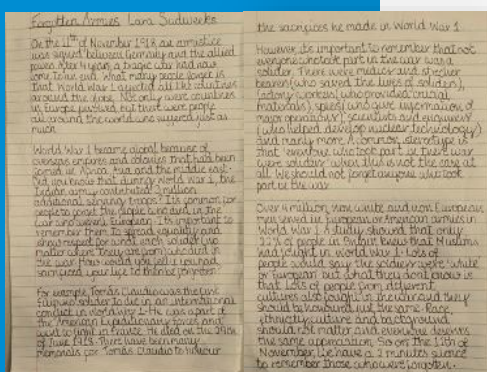 Forgotten Armies Lara Sudweeks
On the 11th of November 1918, an armistice
was signed between Germany and the allied
powers. After 4 years, a tragic war had now
come to an end. What many people forget is
that World War 1 affected all the countries
around the globe. Not only were countries
in Europe involved, but there were people
all around the world who suffered just as
much.
World War 1 became global because of
overseas empires and colonies that had been
formed in Africa, Asia and the middle east.
Did you know that during World War 1, the
Indian army contributed 2 million
additional serving troops? It's common for
people to forget the people who died in the
war who weren't European. It's important to
remember them to spread equality and
show respect for what each soldier (no
matter where they are from) sacrificed in
the war. How would you feel if you had
sacrificed your life to then be forgotten?
For example, Tomás Claudio was the first
Filipino soldier to die in an international
conflict in World War 1. He was a part of
the American Expeditionary Forces and
went to fight in France. He died on the 29th
of June 1918. There have been many
memorials for Tomás Claudio to honour
the sacrifices he made in World War 1.
However, its important to remember that not
everyone who took part in the war was a
soldier. There were medics and stretcher
bearers (who saved the lives of soldiers),
factory workers (who provided crucial
materials), spies (who give information of
major operations), scientists and engineers
(who helped develop nuclear technology)
and many more. A common stereotype is
that 'everybody who took part in the war
were soldiers' when this is not the case at
all. We should not forget anyone who took
part in the war.
Over 4 million non white and non European
men served in European or American armies in
World War 1. A study showed that only
22% of people in Britain knew that Muslims
had fought in World War 1. Lots of
people would say the soldiers were 'white'
or 'European' but what they don't know is
that lots of people from different
cultures also fought in the war and they
should be honoured just the same. Race,
ethnicity, culture and background
should not matter and everyone deserves
the same appreciation. So on the 11th of
November, we have a 2 minutes silence
to remember those who were forgotten.